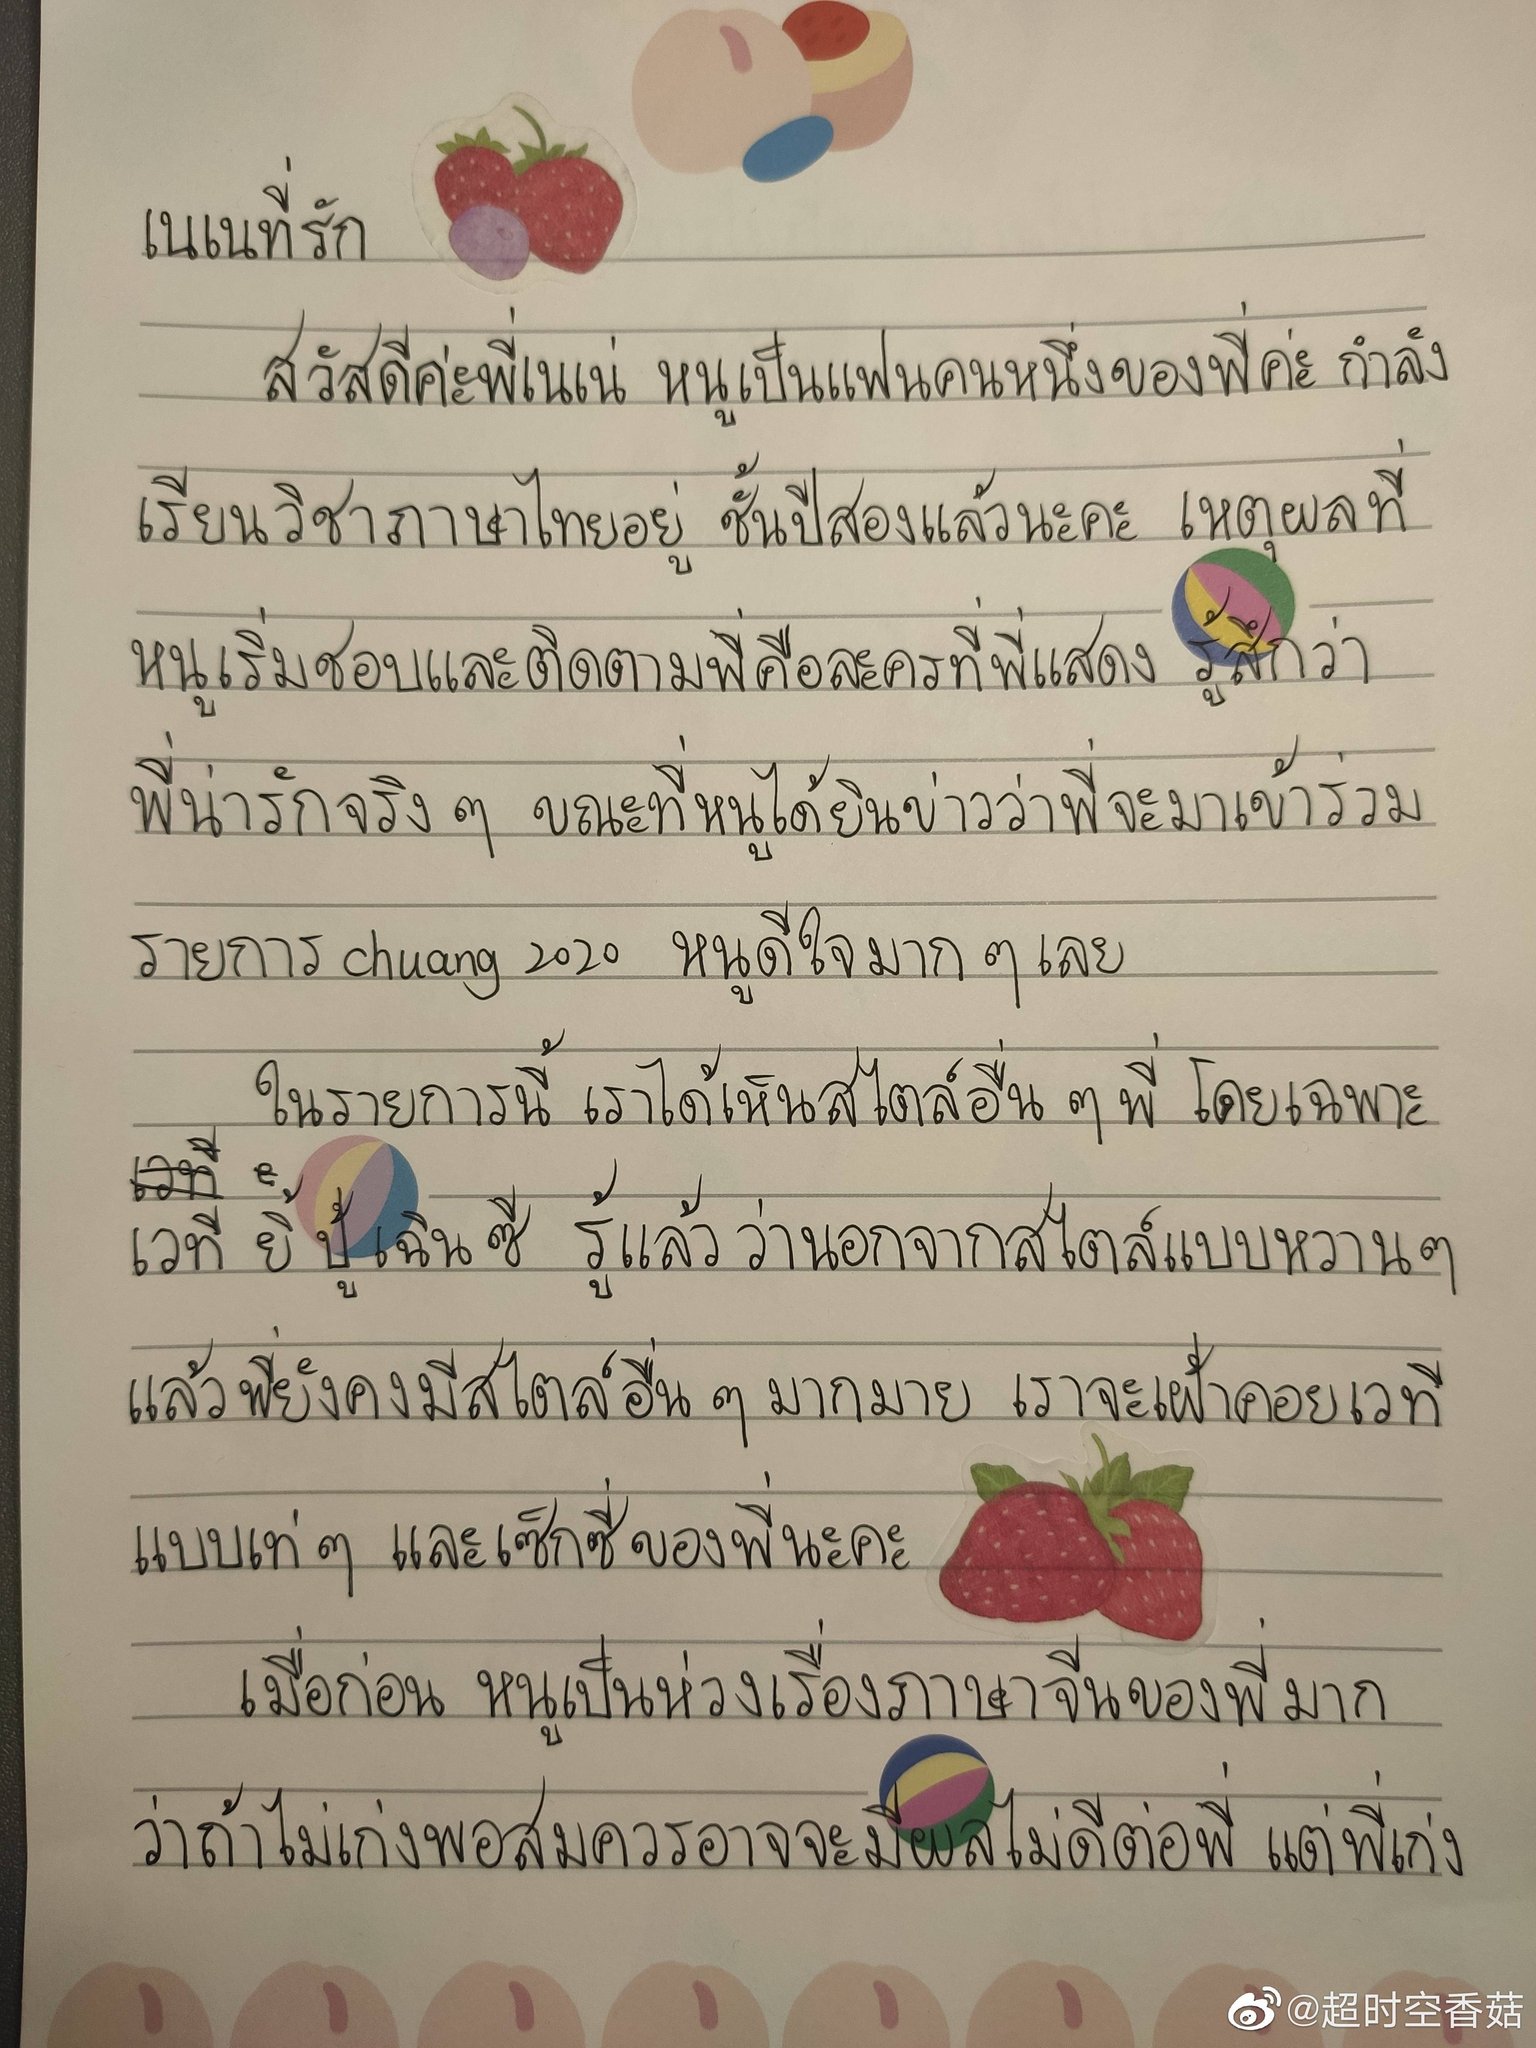 เนเนที่รัก
สวัสดีค่ะพี่เนเน่ หนูเป็นแฟนคนหนึ่งของพี่ค่ะ กำลัง
เรียนวิชาภาษาไทยอยู่ ชั้นปีสองแล้วนะคะ เหตุผลที่
หนูเริ่มชอบและติดตามพี่คือละครที่พี่แสดง รู้สึกว่า
พี่น่ารักจริง ๆ ขณะที่หนูได้ยินข่าวว่าพี่จะมาเข้าร่วม
รายการ chuang 2020 หนูดีใจมาก ๆ เลย
ในรายการนี้ เราได้เห็นสไตล์อื่น ๆ พี่ โดยเฉพาะ
เวที ยี้ ปู้ เฉิน ซี รู้แล้ว ว่านอกจากสไตล์แบบหวาน ๆ
แล้วพี่ยังคงมีสไตล์อื่น ๆ มากมาย เราจะเฝ้าคอยเวที
แบบเท่ ๆ และเซ็กซี่ของพี่นะคะ
เมื่อก่อน หนูเป็นห่วงเรื่องภาษาจีนของพี่มาก
ว่าถ้าไม่เก่งพอสมควรอาจจะมีผลไม่ดีต่อพี่ แต่พี่เก่ง
@超时空香菇